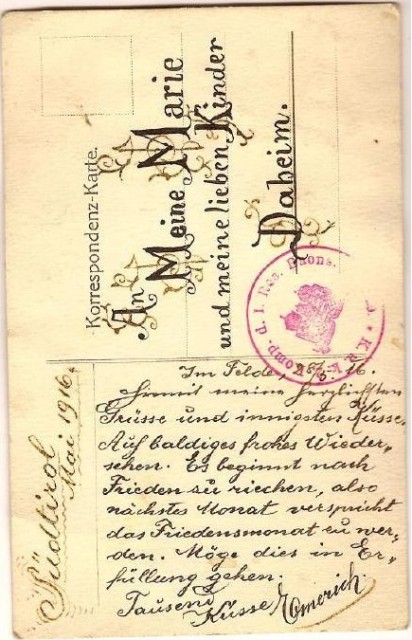 Korrespondenz-Karte.
An
Meine Marie
und meine lieben Kinder
Daheim.
Komp. d. I. Res. Baons. * K.k.
Im Felde, 28/5 16.
Hiermit meine herzlichsten
Grüsse und innigsten Küsse.
Auf baldiges frohes Wieder-
sehen. Es beginnt nach
Frieden zu riechen, also
nächstes Monat verspricht
das Friedensmonat zu wer-
den. Möge dies in Er-
füllung gehen.
Tausend
Küsse Emerich
Südtirol
Mai 1916.